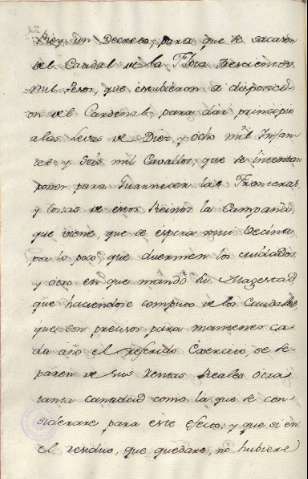 Rey un Decreto, para que se sacasen
del Caudal de la Flota trescientos
mil pesos, que estubieron a disposicion
on del Cardenal, para dar principio
a las Levas de Diez, y ocho mil Infan
tes y seis mil Cavallos, que se intentan
poner para Guarnecer las Fronteras,
y Costas de estos Reinos la Campaña,
que viene, que se espera mui vecina
por lo poco que duermen los cuidados,
y otro en que mandó Su Magestad,
que haciendose computo de los Caudales,
que son precisos para mantener ca
da año el referido Exercito, se se
paren de sus Rentas Reales otra
tanta cantidad como la que se con
siderare para este efecto, y que si en
el residuo, que quedare, no hubiere